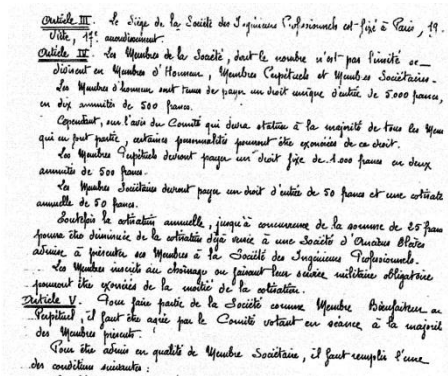 Article III. Le Siège de la Société des Ingénieurs Professionnels est fixé à Paris, 19.
Ville, 17e arrondissement.
Article IV. Les Membres de la Société, dont le nombre n'est pas limité se
divisent en Membres d'Honneur, Membres Perpétuels et Membres Sociétaires.
Les Membres d'honneur sont tenus de payer un droit unique d'entrée de 5.000 francs,
en dix annuités de 500 francs.
Cependant, sur l'avis du Comité qui devra statuer à la majorité de tous les Mem
qui en font partie, certaines personnalités pourront être exonérées de ce droit.
Les Membres Perpétuels devront payer un droit fixe de 1.000 francs en deux
annuités de 500 francs.
Les Membres Sociétaires devront payer un droit d'entrée de 50 francs et une cotisat
annuelle de 50 francs.
Toutefois la cotisation annuelle, jusqu'à concurrence de la somme de 25 fran
pourra être diminuée de la cotisation déjà versée à une Société d'Anciens Elèves
admise à présenter ses Membres à la Société des Ingénieurs Professionnels.
Les Membres inscrits au chômage ou faisant leur service militaire obligatoire
pourront être exonérés de la moitié de la cotisation.
Article V. Pour faire partie de la Société comme Membre Bienfaiteur ou
Perpétuel, il faut être agréé par le Comité votant en séance à la majorit
des Membres présents.
Pour être admis en qualité de Membre Sociétaire, il faut remplir l'une
des conditions suivantes :